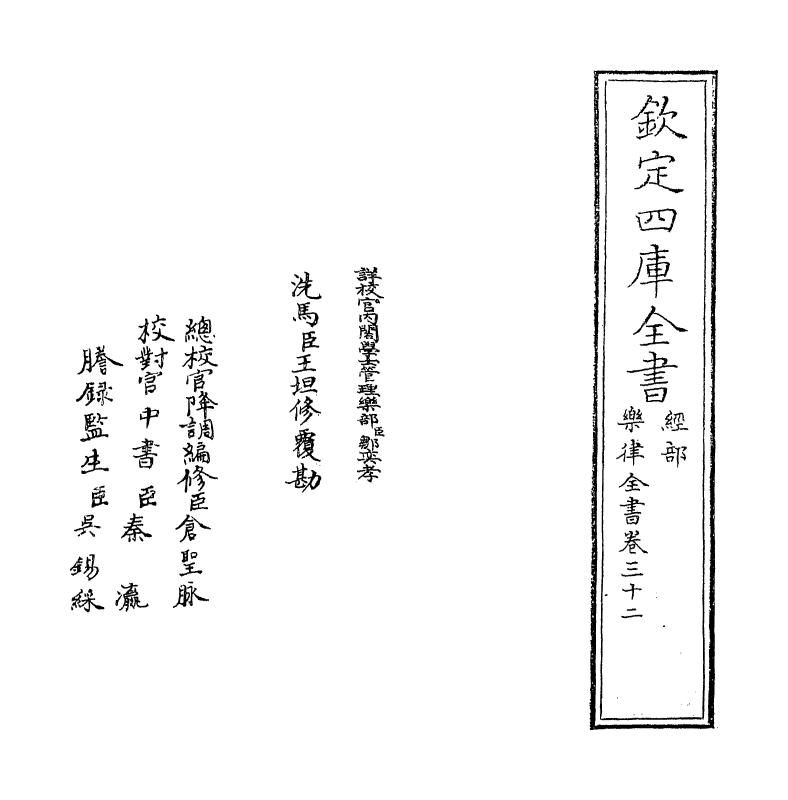 欽定四庫全書
經部
樂律全書卷三十二
詳校官內閣學士管理樂部臣鄒奕孝
洗馬臣王坦修覆勘
總校官降調編修臣倉聖脉
校對官中書臣秦瀛
謄録監生臣吳錫綵